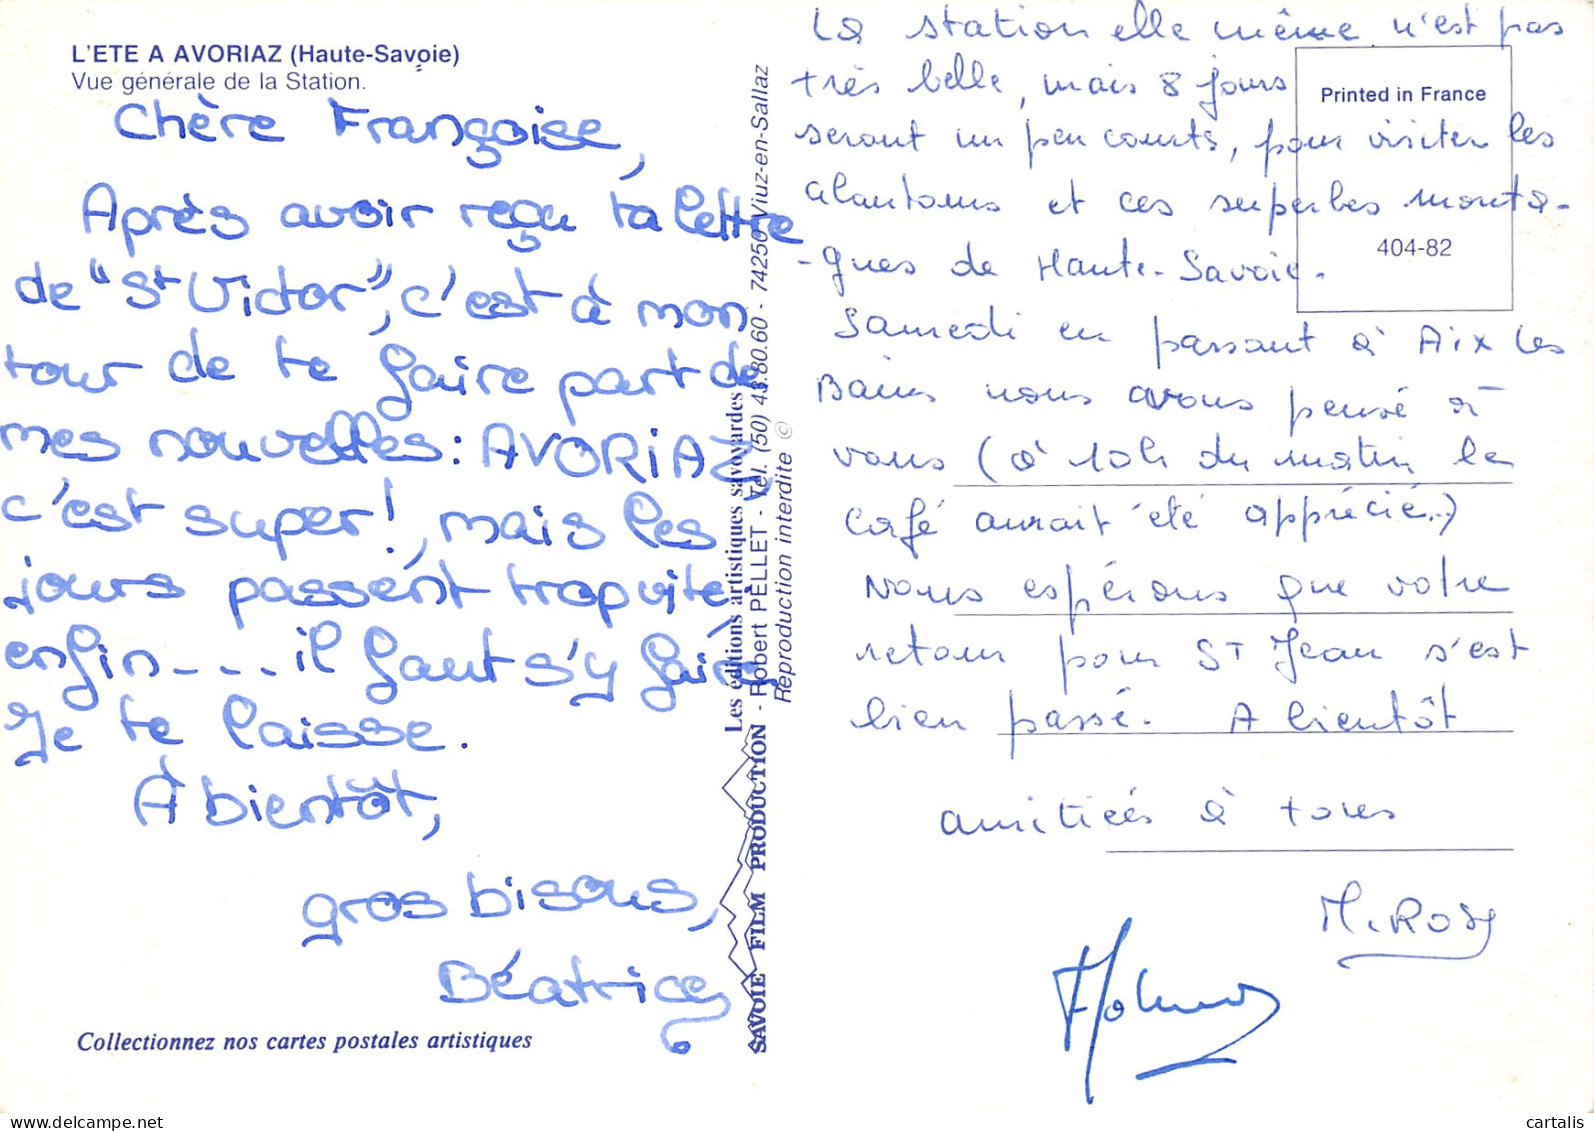 L'ETE A AVORIAZ (Haute-Savoie)
Vue générale de la Station.
Chère Françoise,
Après avoir reçu ta lettre
de "St Victor", c'est à mon
tour de te faire part de
mes nouvelles : AVORIAZ,
c'est super !, mais les
jours passent trop vite
enfin---- il faut s'y faire
Je te laisse.
À bientôt,
gros bisous,
Béatrice
Collectionnez nos cartes postales artistiques
SAVOIE FILM PRODUCTION - Robert PELLET - Tél. (50) 43.80.60 - 74250 Viuz-en-Sallaz
Les éditions artistiques savoyardes
Reproduction interdite ©
La station elle même n'est pas
très belle, mais 8 jours
seront un peu courts, pour visiter les
alentours et ces superbes monta-
-gnes de Haute-Savoie.
Samedi en passant à Aix les
Bains nous avons pensé à
vous (à 10h du matin le
café aurait été apprécié..)
Nous espérons que votre
retour pour St Jean s'est
bien passé. A bientôt
amitiés à tous
M. Rosy
Printed in France
404-82
delcampe.net
cartalis